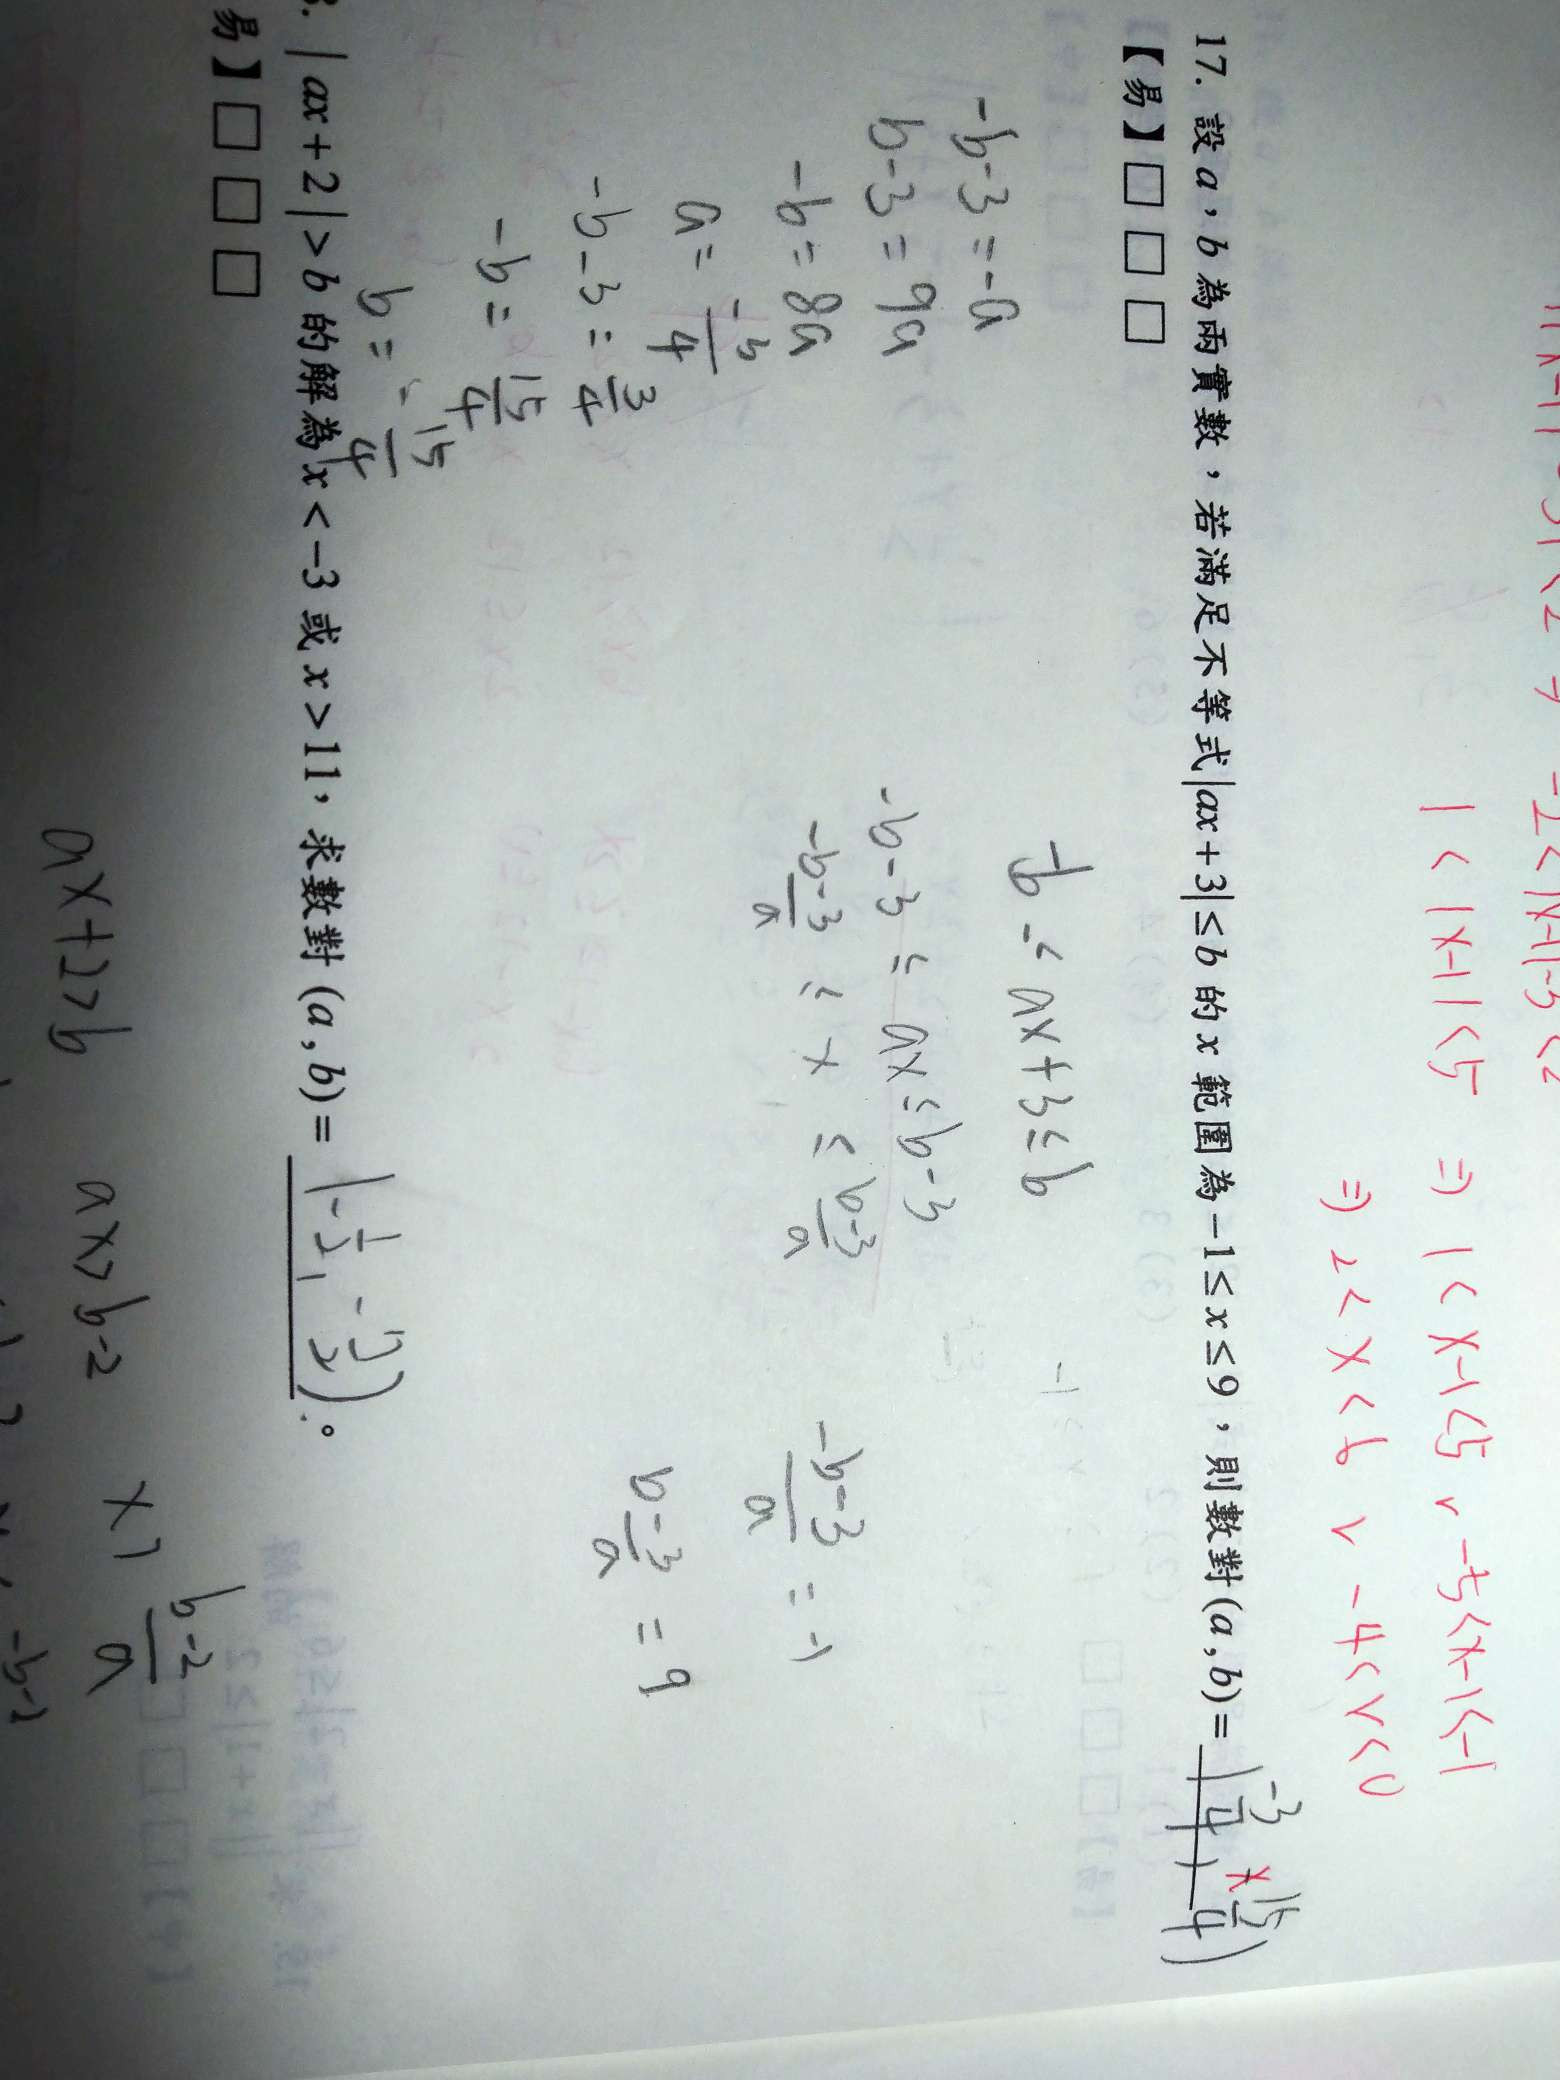 -2<|x-1|-3<2
1<|x-1|<5 ⇒ 1<x-1<5 v -5<x-1<-1
⇒ 2<x<6 v -4<x<0
17. 設a,b為兩實數,若滿足不等式|ax+3|≤b的x範圍為-1≤x≤9,則數對(a,b)=(-3/4, 15/4)
【易】□□□
-b≤ax+3≤b
-b-3=-a
b-3=9a
-b-3≤ax≤b-3
-b-3/a ≤ x ≤ b-3/a
-b-3/a = -1
-6=8a
a=-3/4
b-3/a = 9
-b-3=3/4
-b=15/4
b=-15/4
|ax+2|>b的解為x<-3或x>11,求數對(a,b)=(-1/2, -7/2)。
易】□□□
ax+2>b ax>b-2 x> b-2/a
-b-2